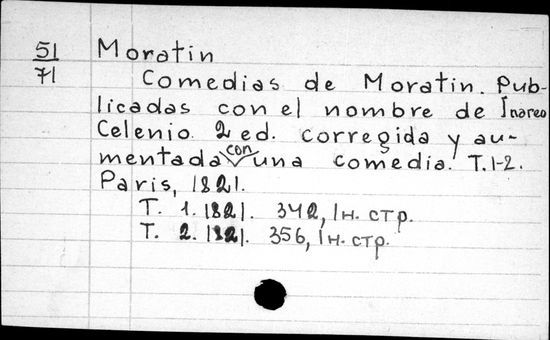 51 Moratin
71 Comedias de Moratin. Pub-
licadas con el nombre de Inareo
Celenio 2 ed. corregida y au-
mentada con una comedia. T.1-2.
Paris, 1821.
T. 1. 1821. 342, 1 н. стр.
T. 2. 1821. 356, 1 н. стр.